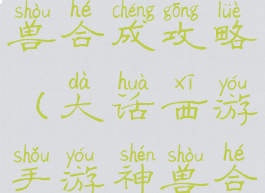 shòu hé chéng gōng lüè
兽合成攻略
dà huà xī yóu
(大话西游
shǒu yóu shén shòu hé
手游神兽合